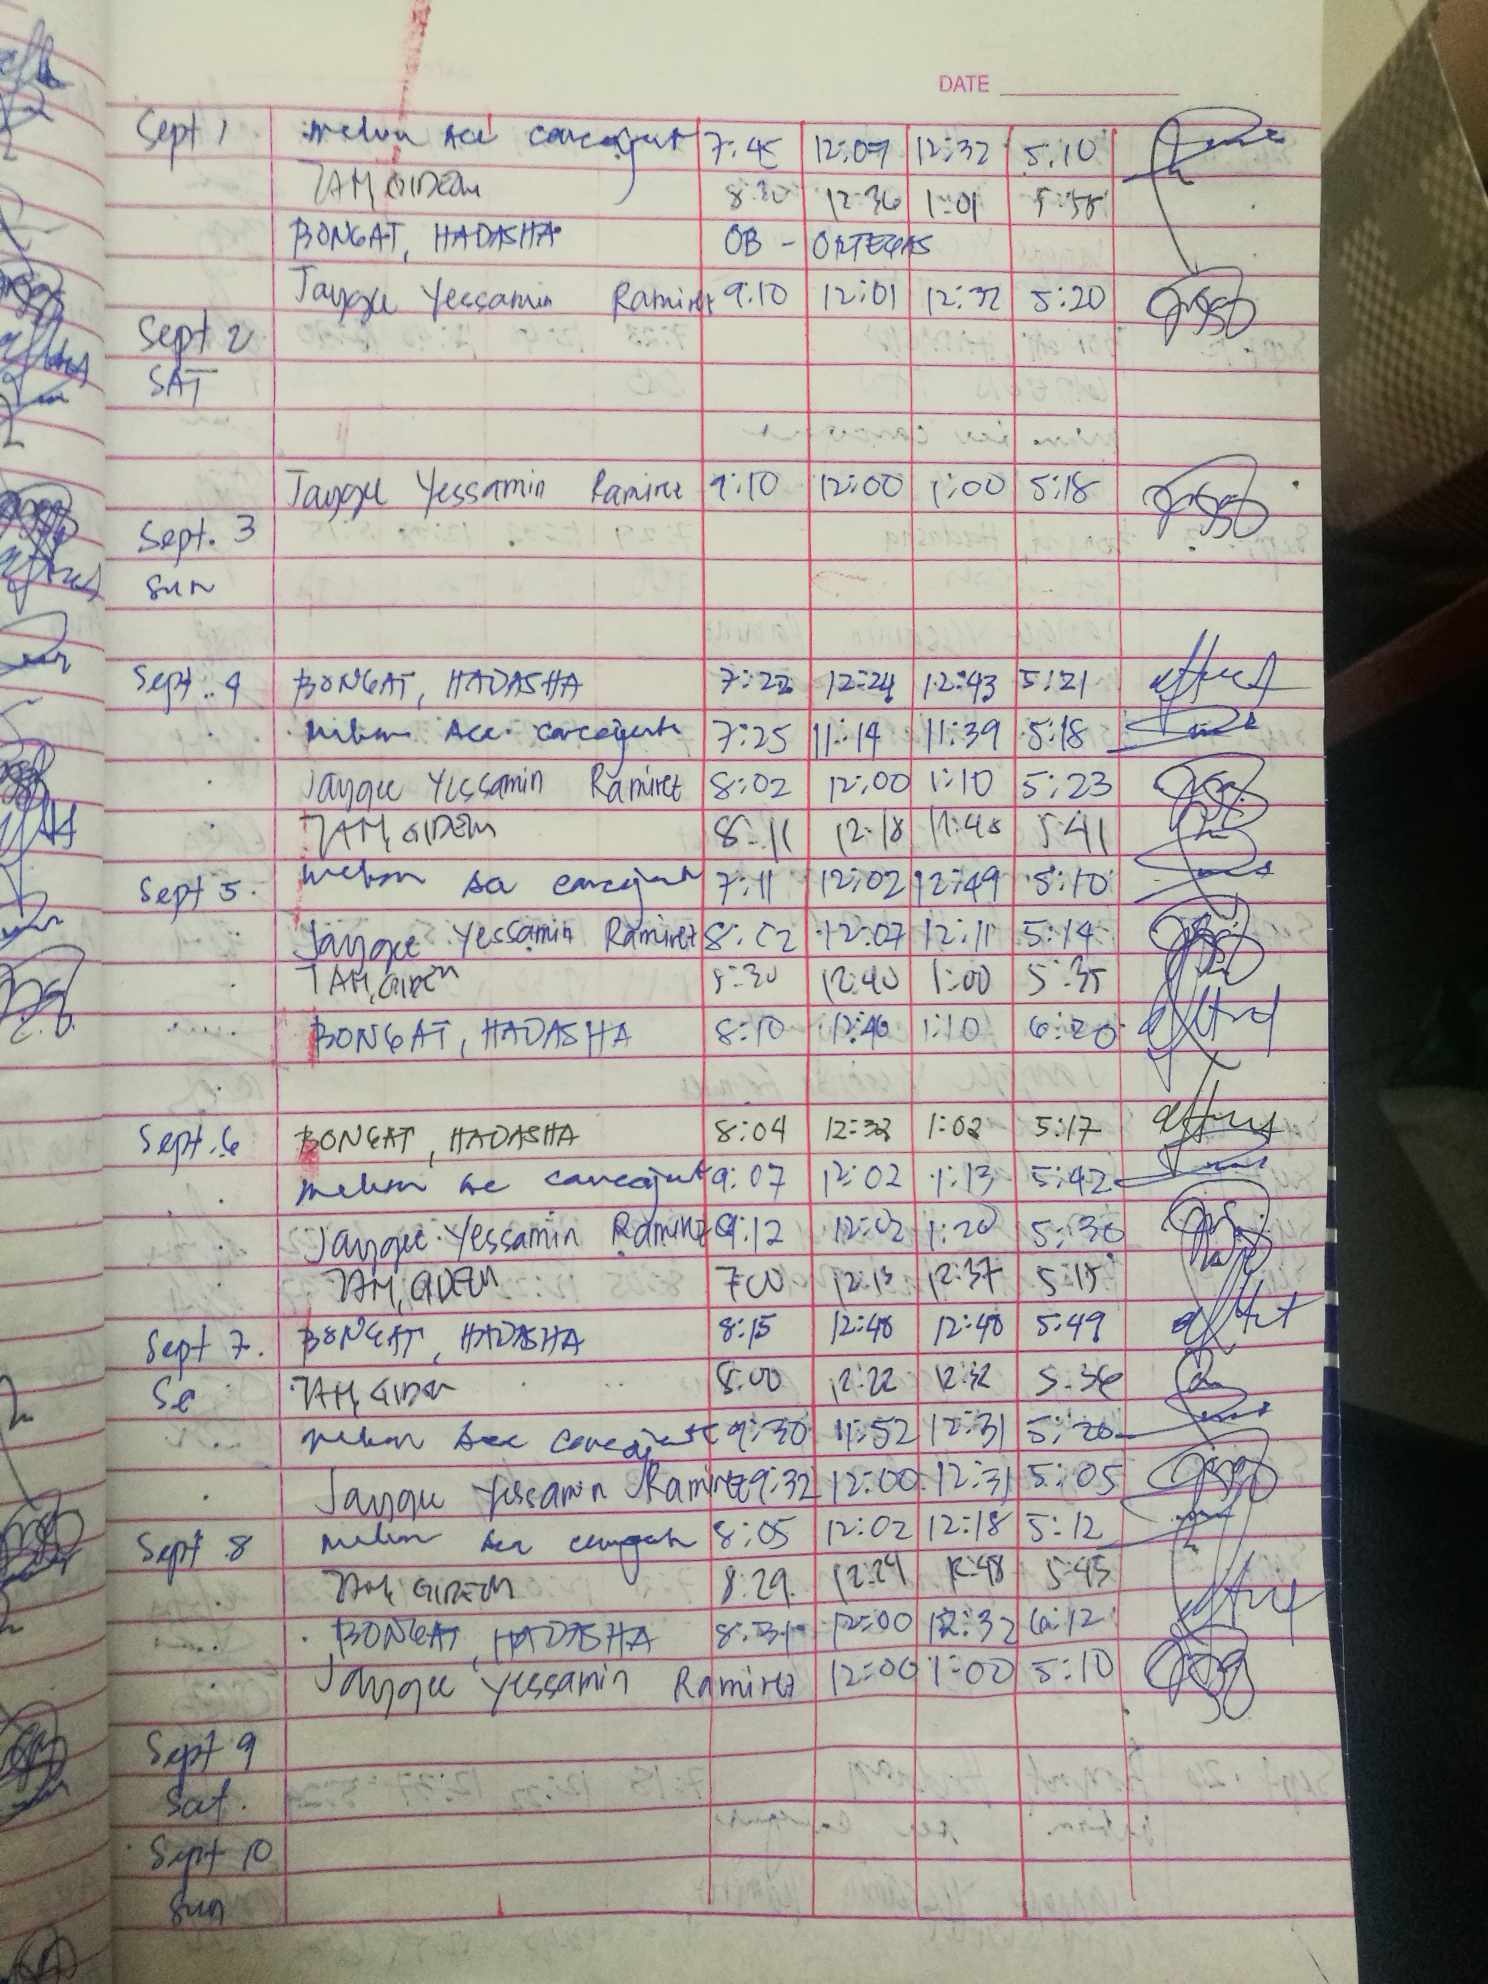 DATE
Sept 1 Ace 7:45 12:07 12:32 5:10
TAM, GIDEON 8:30 12:36 1:01 5:35
BONGAT, HADASHA OB - ORTEGAS
Jaygee Yessamin Ramirez 9:10 12:01 12:32 5:20
Sept 2
SAT
Jaygee Yessamin Ramirez 9:10 12:00 1:00 5:18
Sept. 3
Sun
Sept. 4 BONGAT, HADASHA 7:22 12:24 12:43 5:21
Ace 7:25 11:14 11:39 5:18
Jaygee Yessamin Ramirez 8:02 12:00 1:10 5:23
TAM, GIDEON 8:11 12:18 5:41
Sept 5. 7:11 12:02 12:49 5:10
Jaygee Yessamin Ramirez 8:02 12:07 12:11 5:14
TAM, GIDEON 8:30 12:40 1:00 5:35
BONGAT, HADASHA 8:10 12:46 1:10 6:20
Sept. 6 BONGAT, HADASHA 8:04 12:32 1:02 5:17
9:07 12:02 1:13 5:42
Jaygee Yessamin Ramirez 9:12 12:02 1:20 5:30
TAM, GIDEON 700 12:13 12:37 5:15
Sept 7. BONGAT, HADASHA 8:15 12:48 12:48 5:49
Se TAM, GIDEON 8:00 12:22 12:32 5:36
9:30 11:52 12:31 5:20
Jaygee Yessamin Ramirez 9:32 12:00 12:31 5:05
Sept 8 8:05 12:02 12:18 5:12
TAM, GIDEON 8:29 12:29 12:48 5:45
BONGAT, HADASHA 8:31 12:00 12:32 6:12
Jaygee Yessamin Ramirez 12:00 1:00 5:10
Sept 9
Sat.
Sept 10
Sun